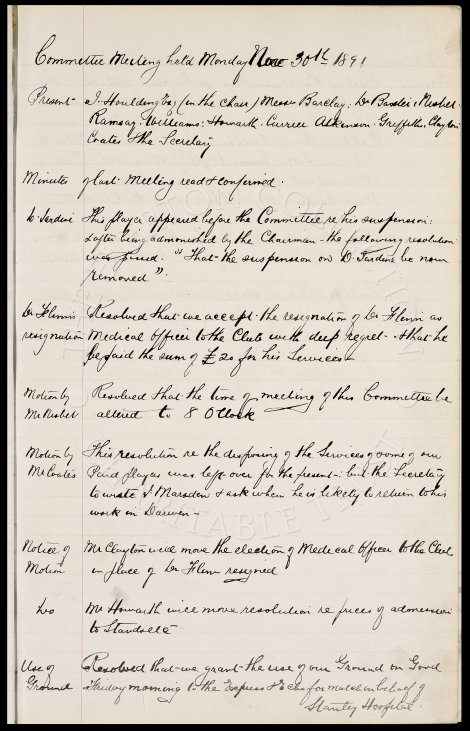 Committee Meeting held Monday Nov 30th 1891
Present - J. Houlding Esq (in the chair) Messrs Barclay. Dr Baxter. Nisbet.
Ramsay. Williams. Howarth. Currier Atkinson. Griffiths. Clayton
Coates & the Secretary
Minutes of last Meeting read & confirmed.
D. Jardine This player appeared before the Committee re his suspension:
& after being admonished by the Chairman - the following resolution
was passed. "That the suspension on D. Jardine be now
removed".
Dr Flinn's Resolved that we accept the resignation of Dr Flinn as
resignation Medical Officer to the Club with deep regret. & that he
be paid the sum of £20 for his Services -
Motion by Resolved that the time of meeting of this Committee be
Mr Nisbet altered to 8 O'Clock
Motion by This resolution re the disposing of the Services of some of our
Mr Coates Paid players was left over for the present: but the Secretary
to write J. Marsden & ask when he is likely to return to his
work in Darwen -
Notice of Mr Clayton will move the election of Medical Officer to the Club
Motion in place of Dr Flinn resigned
Do Mr Howarth will move resolution re prices of admission
to Stands &c
Use of Resolved that we grant the use of our Ground on Good
Ground Friday morning to the Express & Echo for match on behalf of
Stanley Hospital.
CHARITABLE